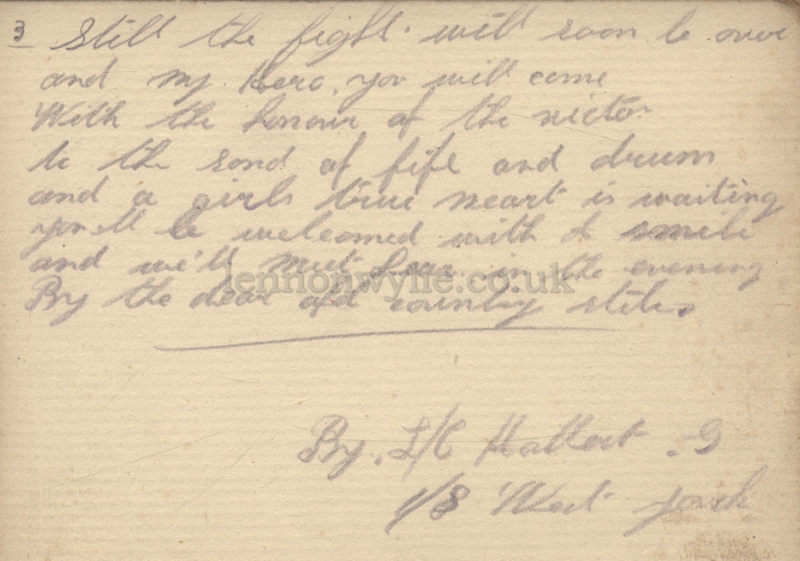 3 Still the fight will soon be over
and my Hero, you will come
With the honour of the victor
to the sond of fife and drum
and a girls true heart is waiting
you'll be welcomed with a smile
and we'll meet dear in the evening
By the dear old country stiles
lennonwylie.co.uk
By. L/C Hallert .G
1/8 West York